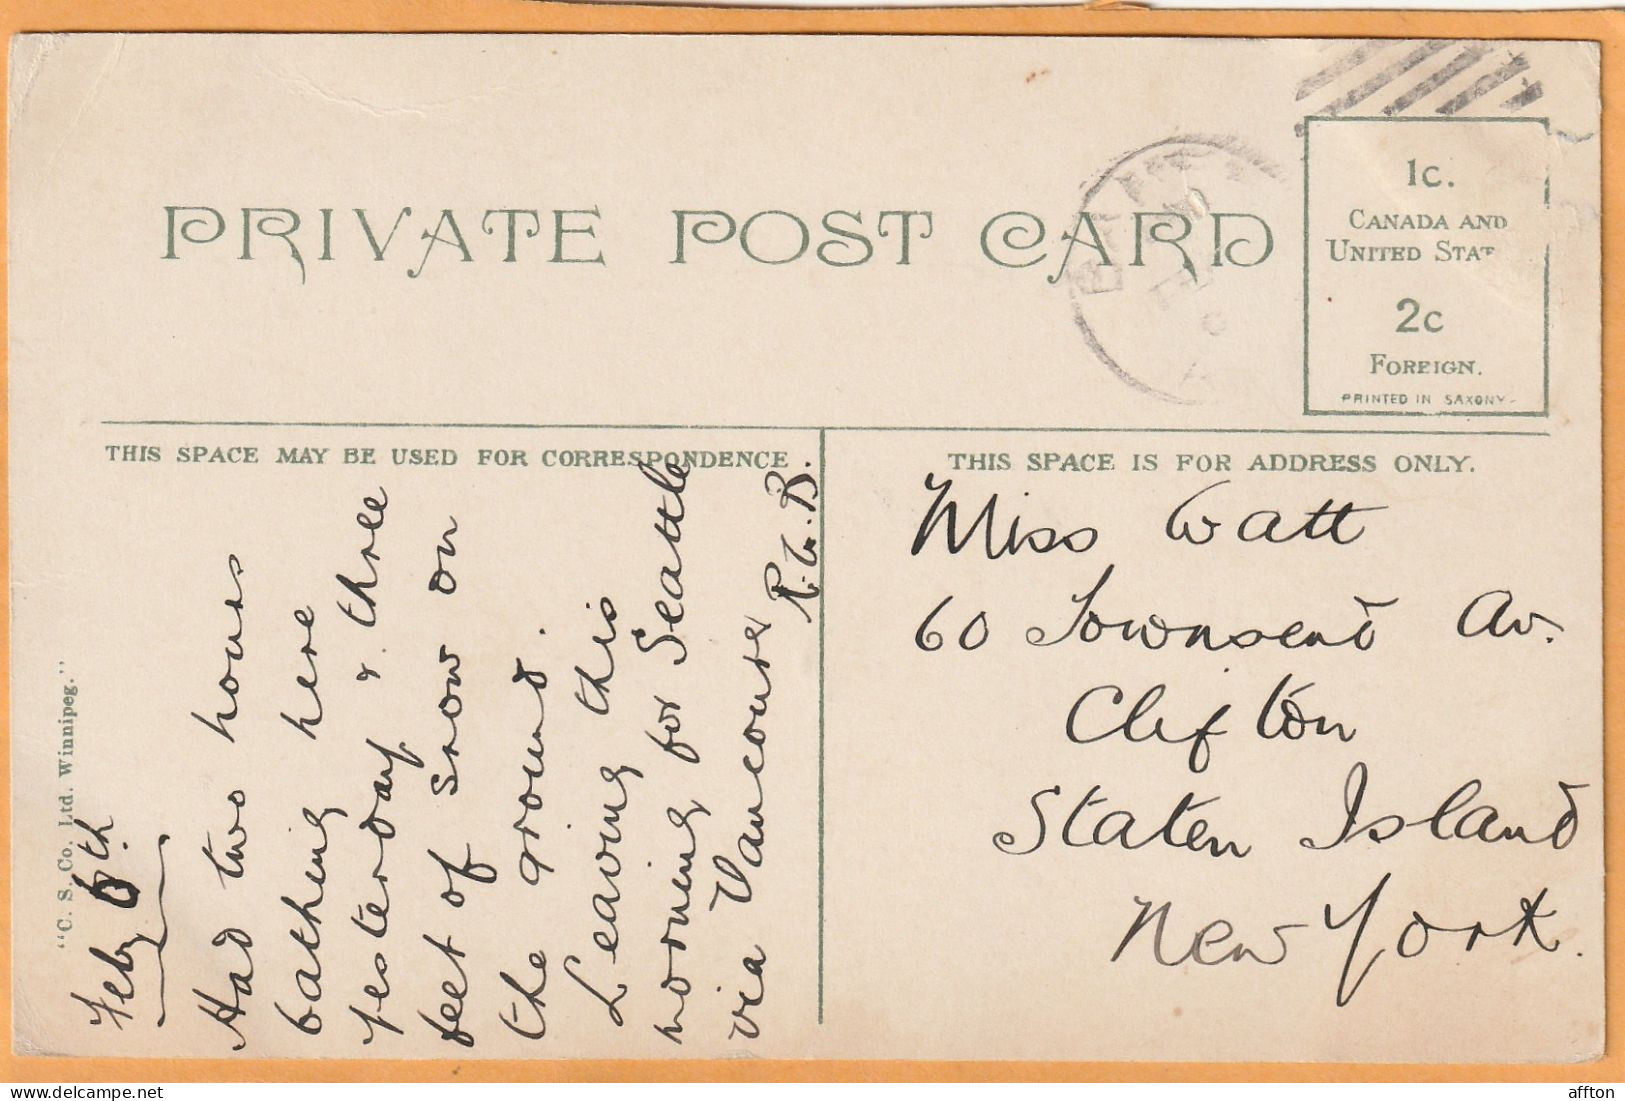 PRIVATE POST CARD
1c.
CANADA AND
UNITED STAT
2c
FOREIGN.
PRINTED IN SAXONY
THIS SPACE MAY BE USED FOR CORRESPONDENCE.
THIS SPACE IS FOR ADDRESS ONLY.
"C. S. Co. Ltd. Winnipeg."
Feby 6th
Had two hours
bathing here
yesterday & three
feet of snow on
the ground.
Leaving this
morning for Seattle
via Vancouver
R.G.B.
Miss Watt
60 Townsend Av.
Clifton
Staten Island
New York.
affton